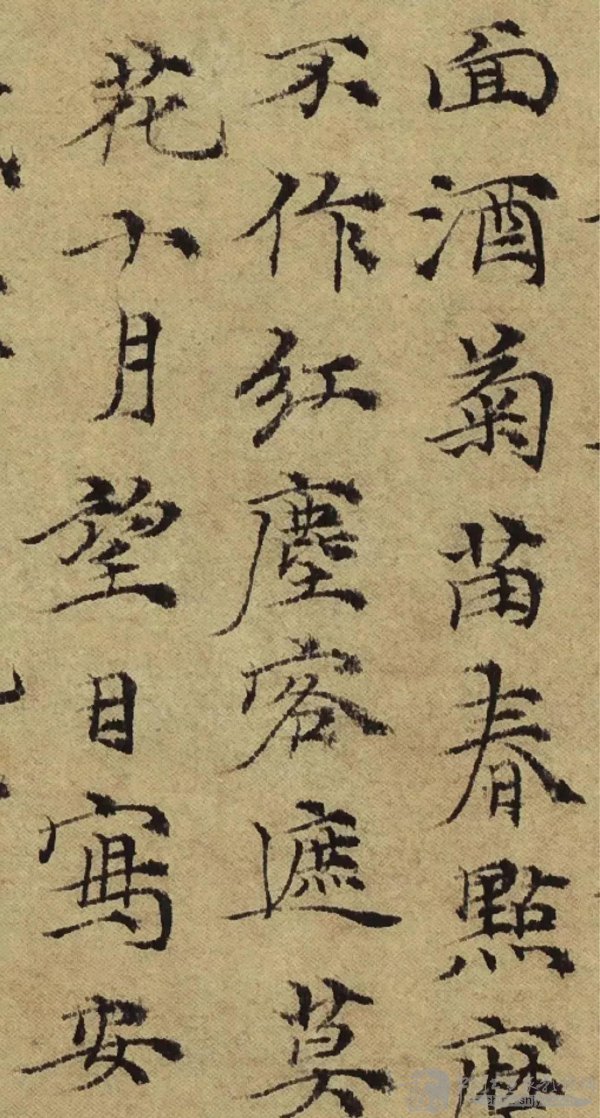 面酒菊苗春點
不作紅塵客遮莫
花十月望日寫安